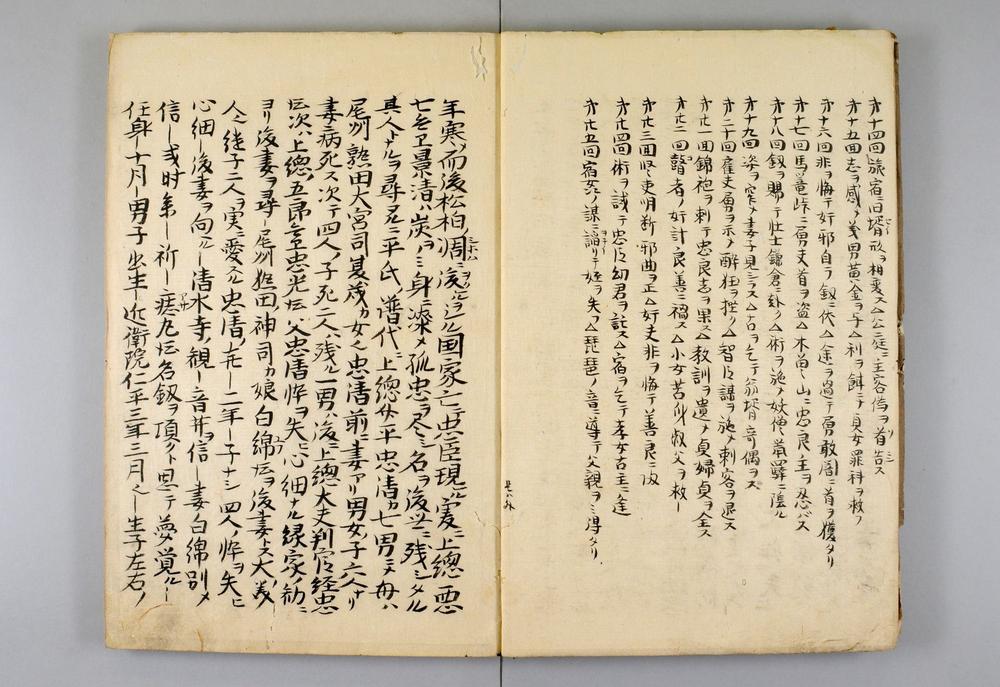 才十四回旅宿ニ旧婿形ヲ相変ス△公庭ニ主客偽ヲ首告ス
才十五回志ヲ感メ義男黄金ヲ与△利ヲ餌ニノ貞女罪科ヲ救フ
才十六回非ヲ悔テ奸邪自ラ釼ニ伏△途ヲ過テ勇敢闇ニ首ヲ獲タリ
才十七回馬篭峠ニ勇夫首ヲ盗△木曽山ニ忠良主ヲ忍バス
才十八回釼ヲ賜テ壮士鎌倉ニ赴ク△術ヲ施メ妖僧駅ニ陰ル
才十九回姿ヲ窄メ妻子見シラス△占ヲ乞テ翁婿奇偶ヲス
才二十回雇夫勇ヲ示メ酔狂ヲ挫リ△智臣謀ヲ施メ刺客ヲ退ス
才廿一回錦袍ヲ刺テ忠良志ヲ果ス△教訓ヲ遺メ貞婦貞ヲ全ス
才廿二回瞽者ノ奸計良善ニ禍ス△小女苦身叔父ヲ救
才廿三回堅吏明断邪曲ヲ正△奸夫非ヲ悔テ善良ニ改
才廿四回術ヲ誡テ忠臣幼君ヲ託ス△宿ヲ乞テ孝女古主ニ逢
才廿五回宿女ノ謀ニ謟リテ姪ヲ失フ△琵琶ノ音ニ導テ父親ヲ得タリ
年寒メ而後松柏凋ニ後ルヽヲシル国家亡忠臣現ル爰ニ上總悪
七兵卫景清ハ炭ヲ身ニ漆メ孤忠ヲ尽ミ名ヲ後世ニ残シタル
其人ナルヲ尋ルニ平氏ノ譜代ニ上總介平忠清カ七男ミメ母ハ
尾州熱田大宮司夏茂カ女ヘ忠清前ニ妻アリ男女子六人ナリ
妻病死ス次テ四人ノ子死二人残ル一男ハ後ニ上總大夫判官経忠
坛次ハ上總五郎兵卫忠光坛父忠清悴ヲ失ヒ心細ナル縁家ノ勧ニ
ヨリ後妻ヲ尋尾州熱田神司カ娘白綿坛ヲ後妻トス大義
人ニ継子二人ヲ実ニ愛スル忠清ノ老一二年一子ナシ四人ノ悴ヲ失ヒ
心細一後妻ヲ向ル一清水寺ノ観音井ヲ信一妻白綿別メ
信一或时籠一祈一痣丸坛名釼ヲ頂ク卜思テ夢覚ル一
任身十月一男子出生一近衛院仁平三年三月ヘ一生子左右ノ